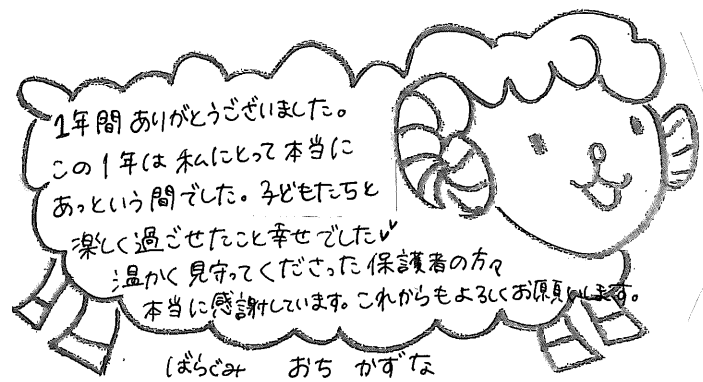 1年間ありがとうございました。
この1年は私にとって本当に
あっという間でした。子どもたちと
楽しく過ごせたこと幸せでした
温かく見守ってくださった保護者の方々
本当に感謝しています。これからもよろしくお願いします。
ばらぐみ おち かずな